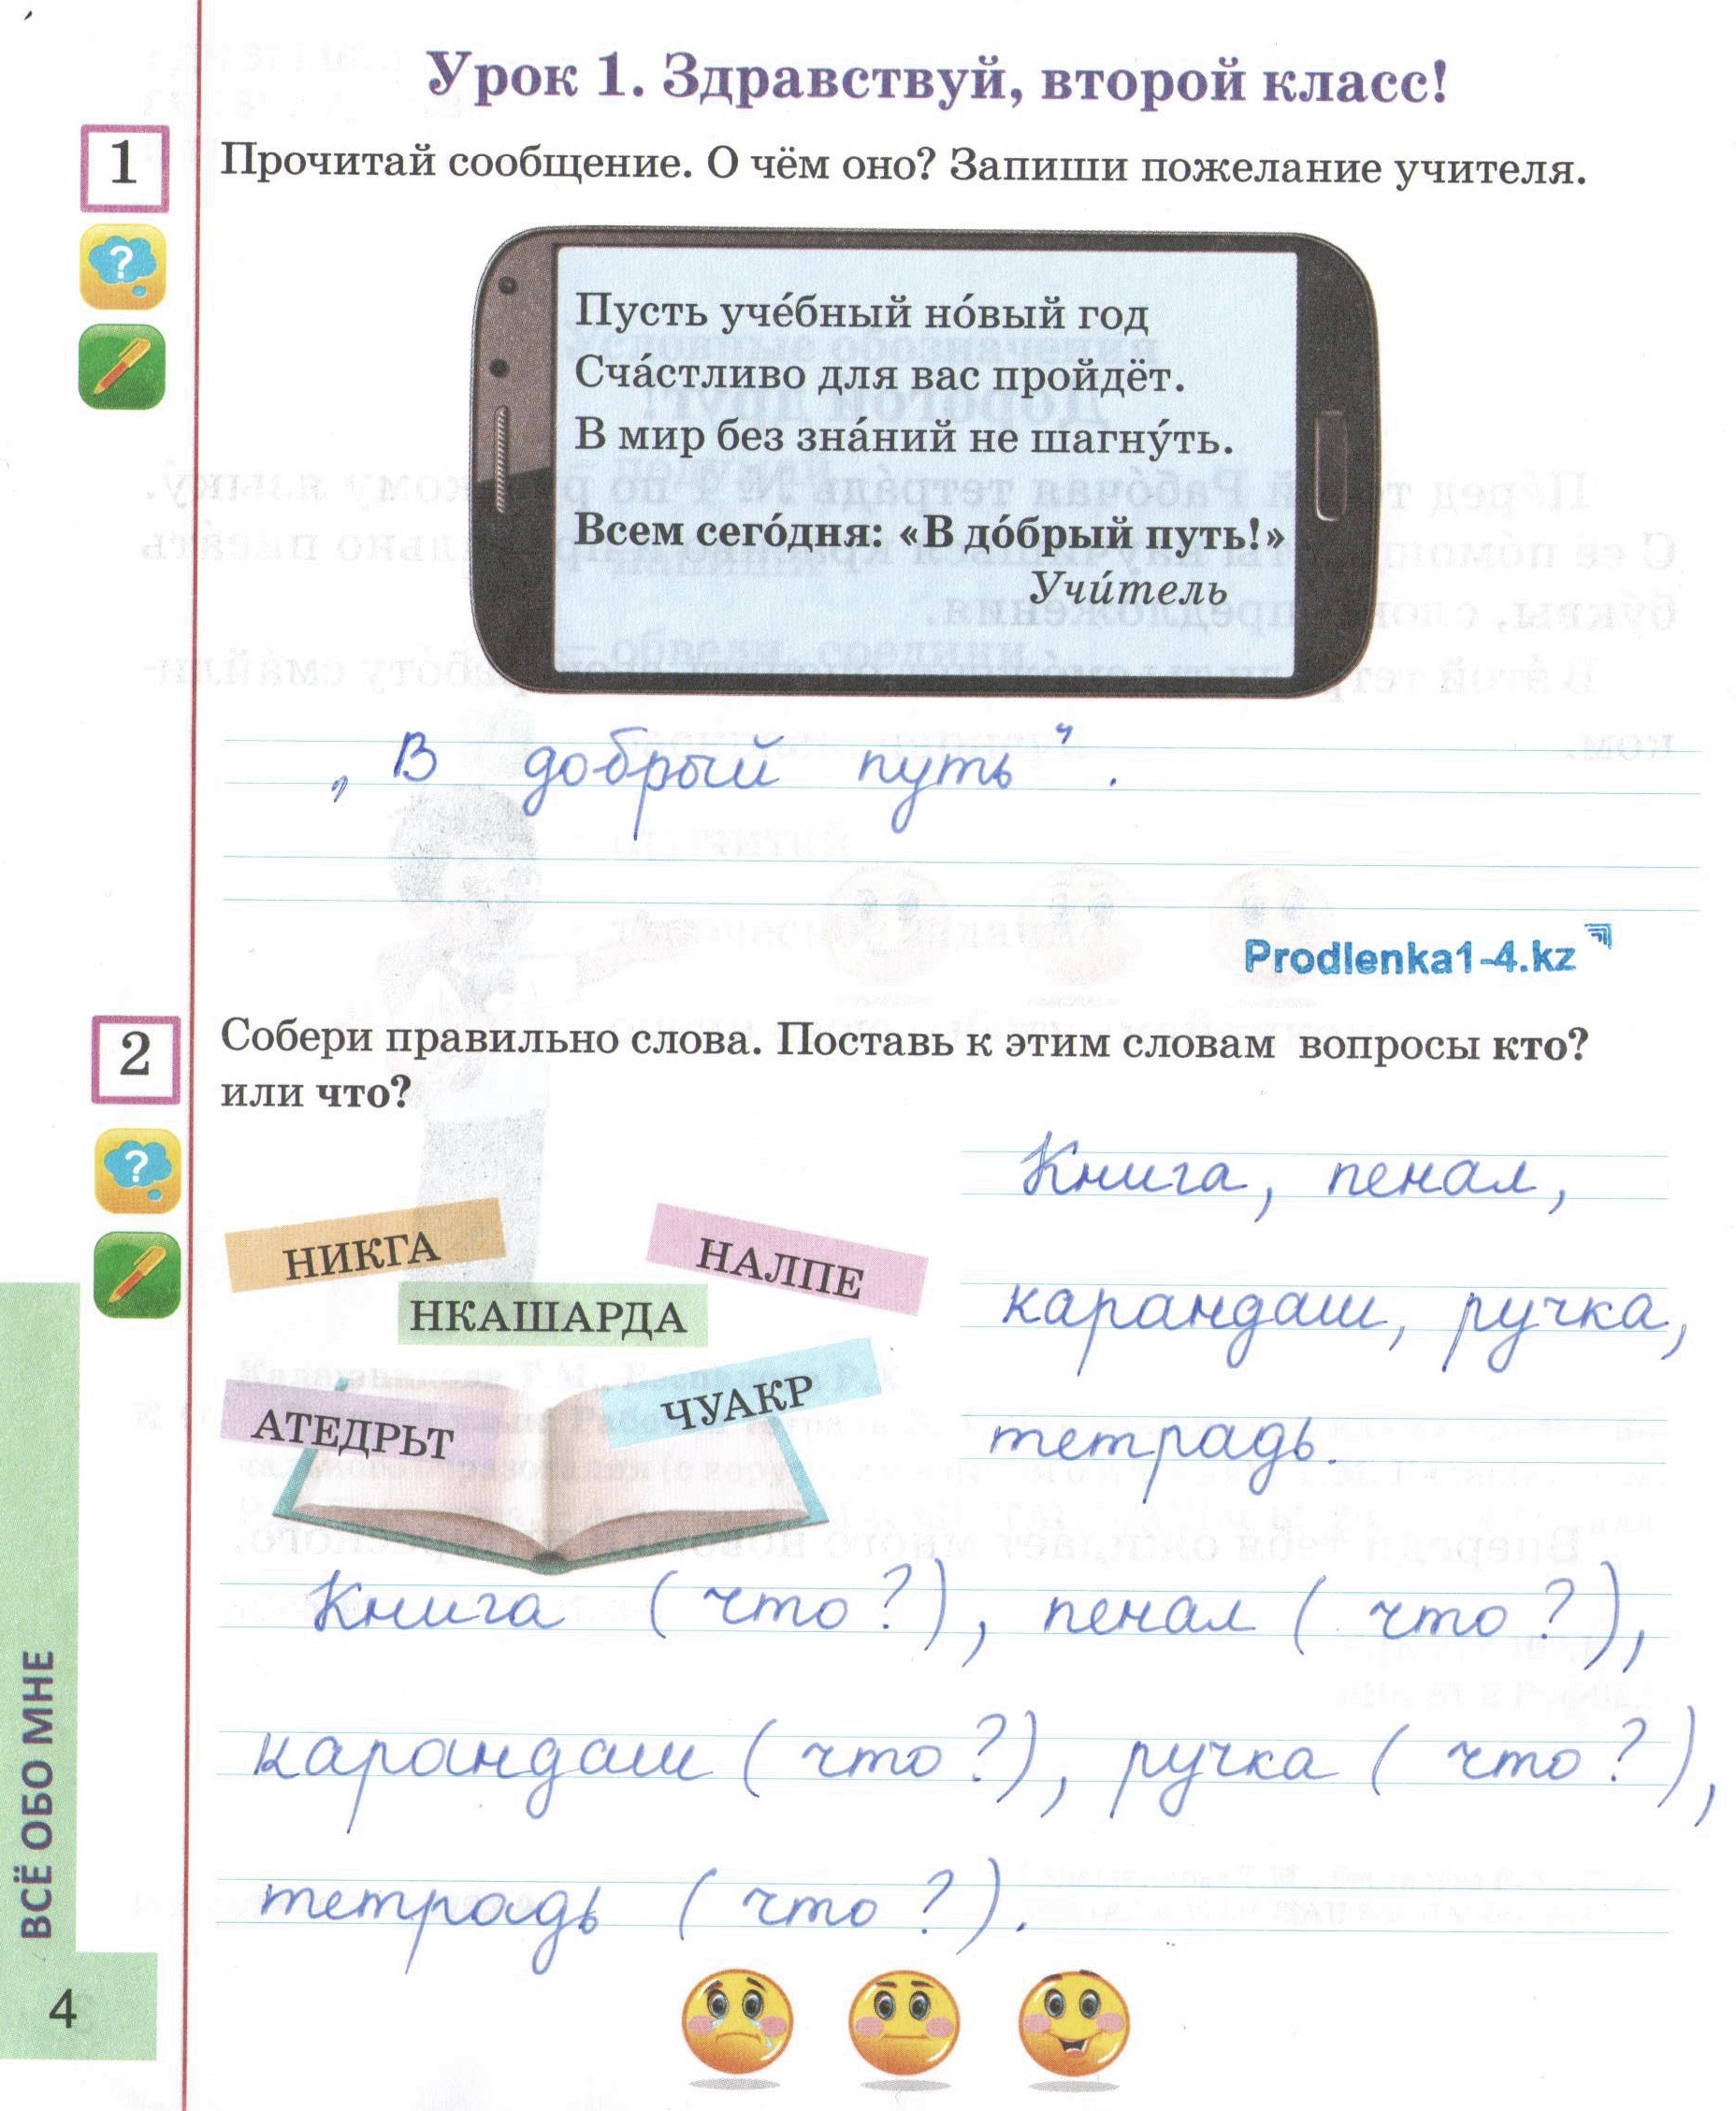 Урок 1. Здравствуй, второй класс!
1
Прочитай сообщение. О чём оно? Запиши пожелание учителя.
?
Пусть уче́бный но́вый год
Сча́стливо для вас пройдёт.
В мир без зна́ний не шагну́ть.
Всем сего́дня: «В до́брый путь!»
Учи́тель
„В добрый путь“.
Prodlenka1-4.kz
2
Собери правильно слова. Поставь к этим словам вопросы кто?
или что?
?
НИКГА
НАЛПЕ
НКАШАРДА
АТЕДРЬТ
ЧУАКР
Книга, пенал,
карандаш, ручка,
тетрадь.
Книга (что?), пенал (что?),
карандаш (что?), ручка (что?),
тетрадь (что?).
ВСЁ ОБО МНЕ
4